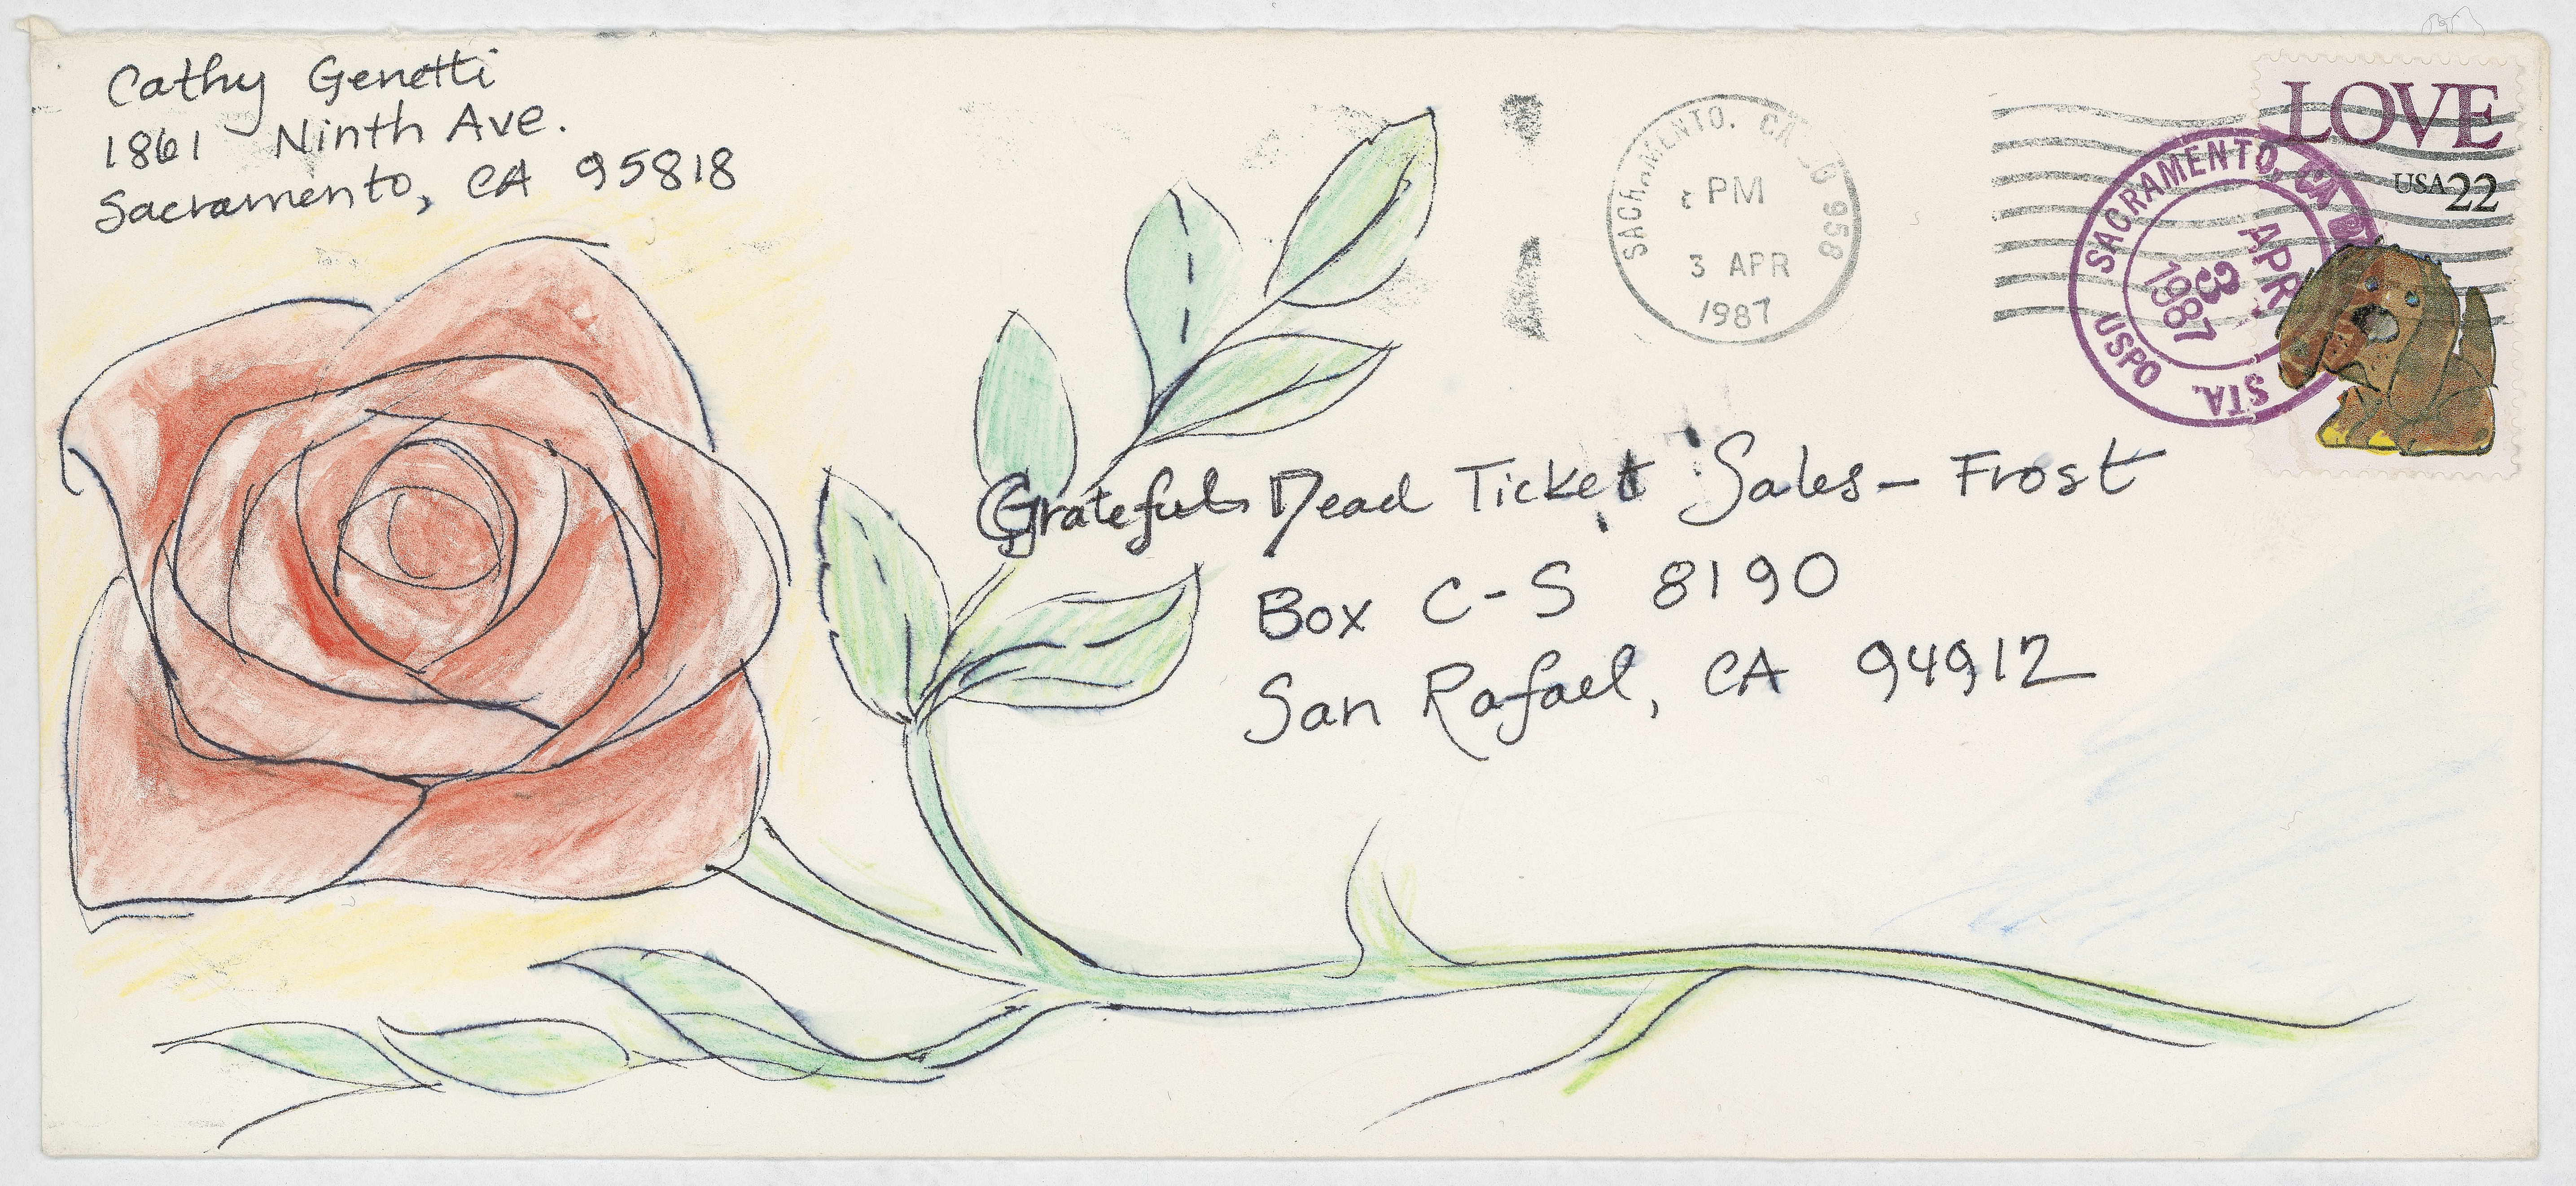 Cathy Genetti
1861 Ninth Ave.
Sacramento, CA 95818
SACRAMENTO, CA 958
PM
3 APR
1987
SACRAMENTO, CA
APR
3
1987
USPO STA.
LOVE
USA 22
Grateful Dead Ticket Sales - Frost
Box C-S 8190
San Rafael, CA 94912